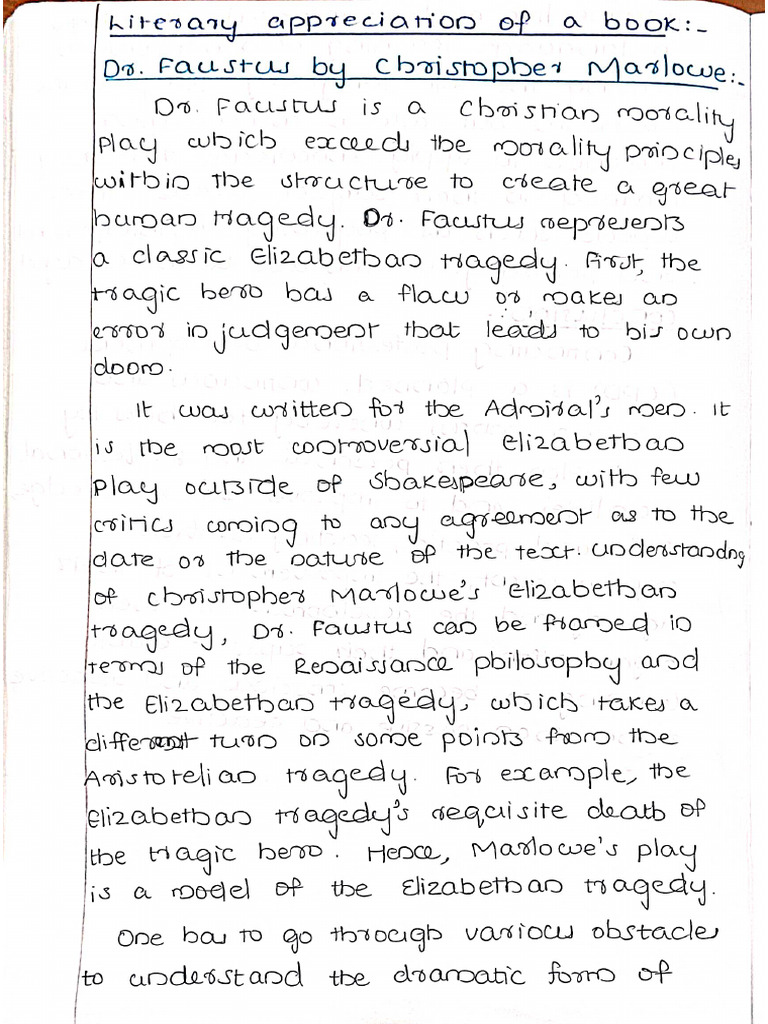 Literary appreciation of a book:-
Dr. Faustus by Christopher Marlowe:-
Dr. Faustus is a Christian morality
play which exceeds the morality principles
within the structure to create a great
human tragedy. Dr. Faustus represents
a classic Elizabethan tragedy. First, the
tragic hero has a flaw or makes an
error in judgement that leads to his own
doom.
It was written for the Admiral's men. It
is the most controversial Elizabethan
play outside of Shakespeare, with few
critics coming to any agreement as to the
date or the nature of the text. Understanding
of Christopher Marlowe's Elizabethan
tragedy, Dr. Faustus can be framed in
terms of the Renaissance philosophy and
the Elizabethan tragedy, which takes a
different turn on some points from the
Aristotelian tragedy. For example, the
Elizabethan tragedy's requisite death of
the tragic hero. Hence, Marlowe's play
is a model of the Elizabethan tragedy.
One has to go through various obstacles
to understand the dramatic form of